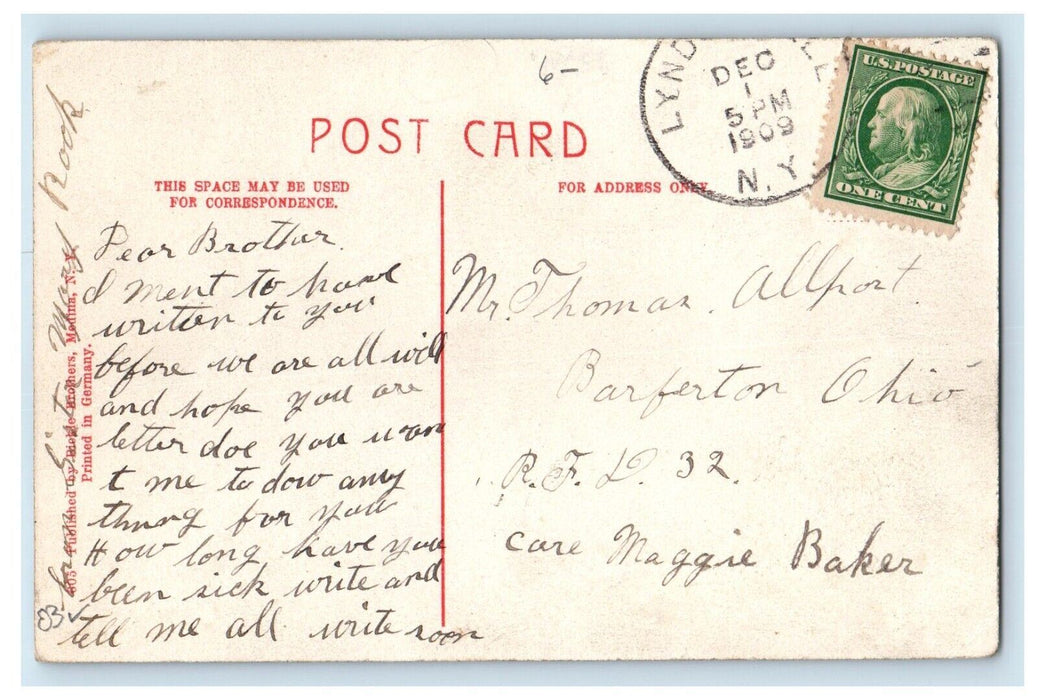 6-
POST CARD
THIS SPACE MAY BE USED
FOR CORRESPONDENCE.
FOR ADDRESS ONLY.
LYND LE
DEC
1
5 PM
1909
N.Y.
U.S. POSTAGE
ONE CENT
Dear Brother.
I ment to have
written to you
before we are all will
and hope you are
letter doe you wan
t me to dow any
thing for you
How long have you
been sick write and
tell me all write soon
from Sister Mary Rook
605 Published by Brothers, Medina, N. Y.
Printed in Germany.
83
Mr. Thomas Allport.
Barferton Ohio
R.F.D. 32
care Maggie Baker